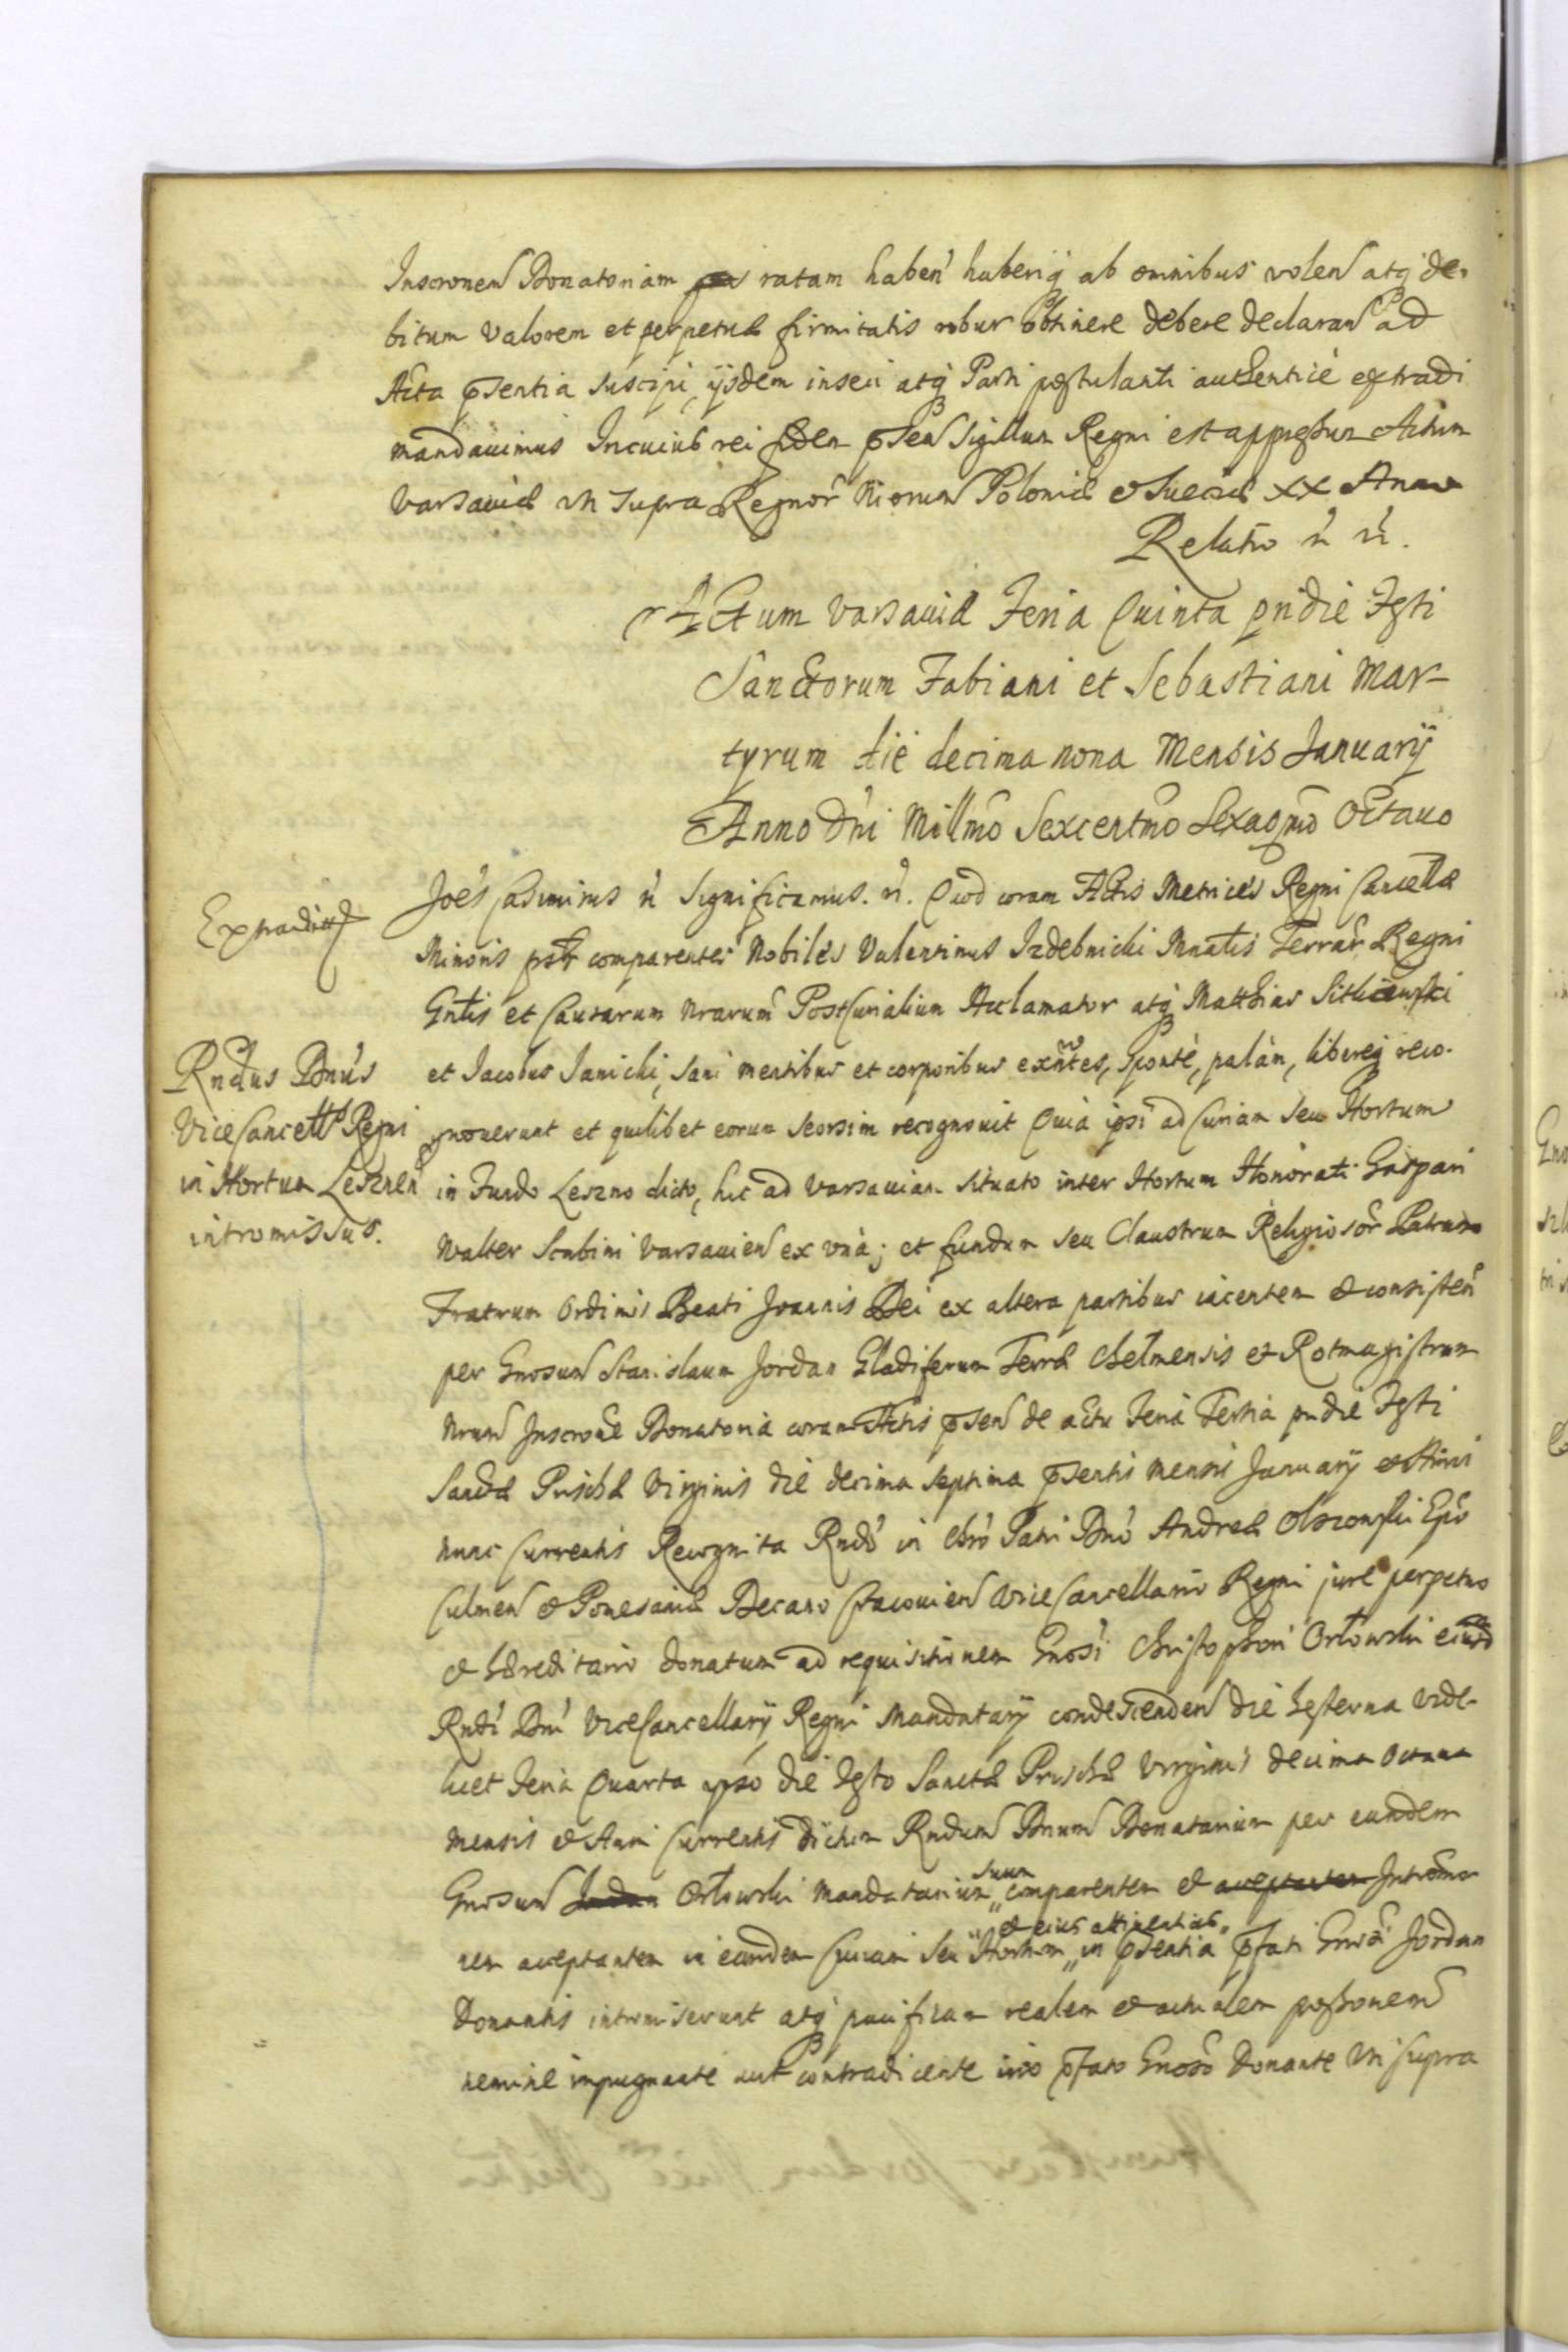 Inscronem Donatoriam ratam haben haberiq ab omnibus volen atq de-
bitum valorem et perpetuæ firmitatis robur obtinere debere declaran ad
Acta pntia suscipi, ijsdem inseri atq Parti postulanti authenticè extradi
mandauimus In cuius rei fidem pnen Sigillum Regni est appressum Actum
Varsauiæ ut supra Regnor nrorum Poloniæ et Sueciæ XX Anno
Relatio
Actum Varsauiæ Feria Quinta pridie Festi
Sanctorum Fabiani et Sebastiani Mar-
tyrum die decima nona Mensis January
Anno Dni Millmo Sexcentmo Sexagmo Octauo
Extradit
Joes Casimirus significamus. Quod coram Actis Metrices Regni Cancellæ
Minoris psr comparentes Nobiles Valentinus Izdebnicki Mnatis Terrar Regni
Gntis et Causarum nrarum PostCurialium Acclamator atq Matthias Sitkiewski
Rndus Dnus
ViceCancells Regni
in Hortum Lesznen
intromissus.
et Jacobus Janicki, sani mentibus et corporibus exntes, sponte, palàm, libereq reco-
gnouerunt et quilibet eorum seorsim recognouit Quia ipsi ad Curiam seu Hortum
in Fundo Leszno dicto, hic ad Varsauiam situato inter Hortum Honorati Gaspari
Walter Scabini Varsauien ex vnà; et fundum seu Claustrum Religiosor Patrum
Fratrum Ordinis Beati Joannis Dei ex altera partibus iacentem et consisten
per Gnosum Stanislaum Jordan Gladiferum Terræ Chelmensis et Rotmagistrum
nrum Inscrone Donatoria coram Actis pnen de actu Feria Tertia pridie Festi
Sanctæ Priscæ Virginis die decima septima pntis mensis January et Anni
nunc Currentis Recognita Rndo in Chro Patri Dno Andreæ Olszowski Epo
Culmen et Pomesaniæ Decano Cracouien ViceCancellario Regni jure perpetuo
et hæreditario donatum ad requisitionem Gnosi Christophori Orłowski eiusd
Rndi Dni ViceCancellarij Regni Mandatarij condescenden die hesterna vide-
licet Feria Quarta ipso die Festo Sanctæ Priscæ Virginis decima octaua
mensis et Anni Currentis dictum Rndum Dnum Donatarium per eundem
Gnosum Jordan Orłowski Mandatarium suum comparentem et acceptantem Intromo
nem acceptantem in eandem Curiam seu Hortum et eius attinentias in pntia pfati Gnosi Jordan
Donantis intromiserunt atq pacificam realem et actualem possonem
nemine impugnante aut contradicente imo pfato Gnoso Donante Uti supra